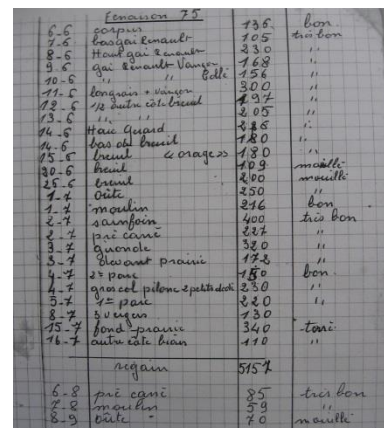 Fenaison 75
6-6 corpus 136 bon.
7-6 bas gai Renault 105 très bon
8-6 Haut gai Renault 230 "
9-6 gai Renault Vançon 168 "
10-6 " " 156 "
11-6 longrais + vançon 300 "
12-6 1/2 autre côté breuil 197 "
13-6 " " 205 "
14-6 Haie Guard 226 "
14-6 bas du breuil 180 "
15-6 breuil «orage» 180 "
20-6 breuil 109 mouillé
25-6 breuil 200 mouillé
1-7 oûte 250 "
1-7 moulin 216 bon
2-7 sainfoin 400 très bon
2-7 pré carré 227 "
3-7 gironde 320 "
3-7 devant prairie 172 "
4-7 2e parc 150 bon.
4-7 gros col pilone 2 petits 230 "
5-7 1er parc 220 "
8-7 3 verges 130
15-7 fond prairie 340 terré
16-7 autre côté biais 110 "
regain 5157
6-8 pré carré 85 très bon
7-8 moulin 59 "
8-9 oûte 70 mouillé